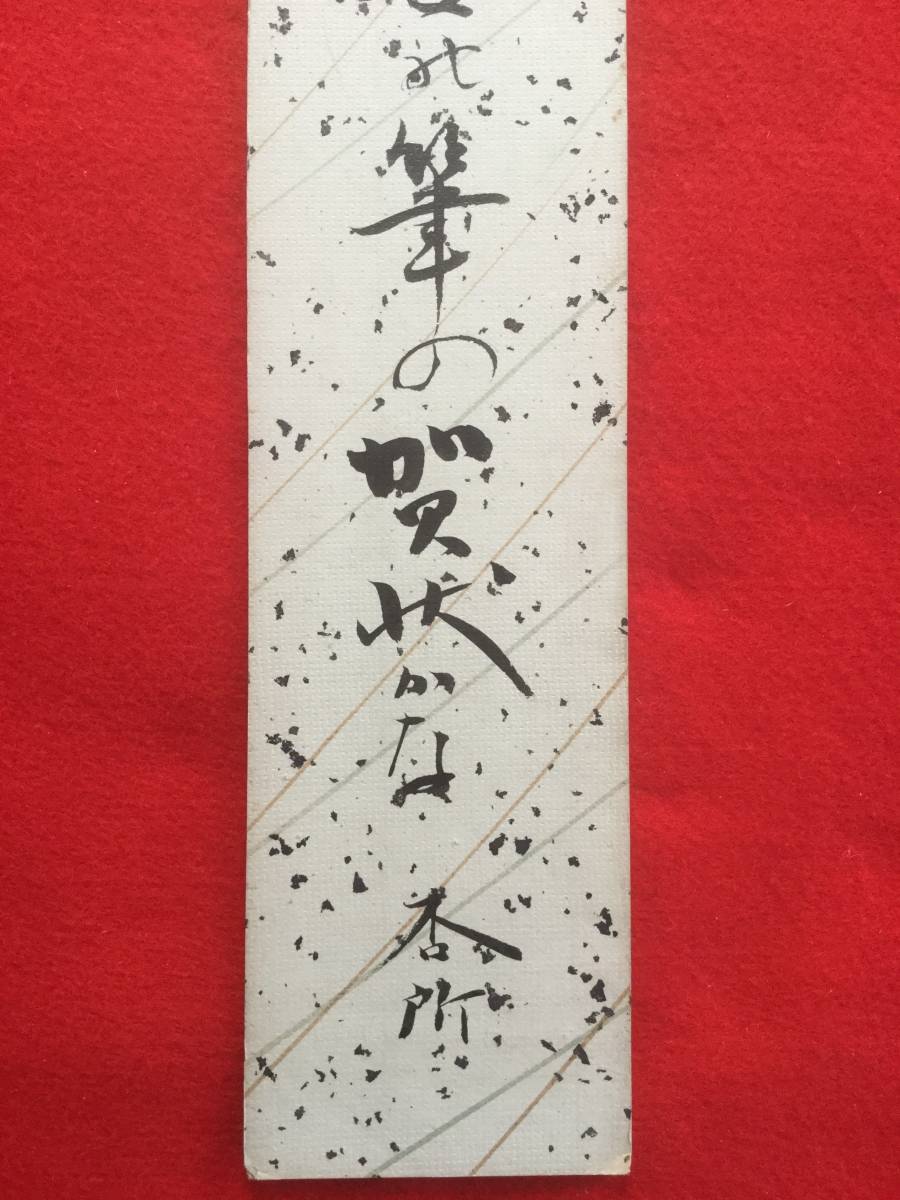 筆の賀状かな
杏所